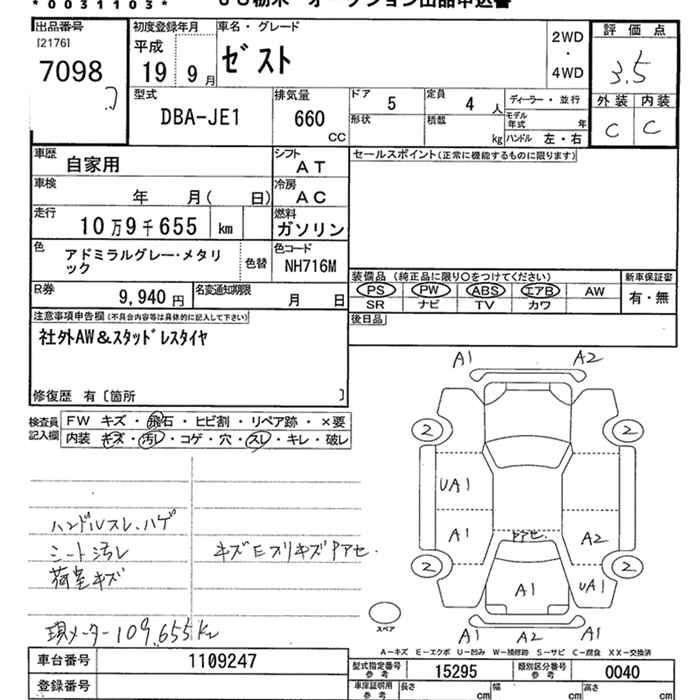 *0031103*
JU栃木 オークション出品申込書
出品番号
[2176]
7098
初度登録年月
平成
19 9月
車名・グレード
ゼスト
2WD
・
4WD
評価点
3.5
外装 内装
C C
型式
DBA-JE1
排気量
660
CC
ドア 5
定員 4 人
ディーラー・並行
形状
積載 kg
モデル年式 年
ハンドル 左・右
車歴 自家用
シフト AT
セールスポイント(正常に機能するものに限ります)
車検 年 月( 日)
冷房 AC
走行 10万9千655 km
燃料 ガソリン
色 アドミラルグレー・メタリ
ック
色替
色コード
NH716M
R券 9,940 円
名変通知期限 月 日
装備品(純正品に限り○をつけてください)
新車保証書
PS PW ABS エアB AW
有・無
SR ナビ TV カワ
後日品
注意事項申告欄(不具合内容等は具体的に記入して下さい)
社外AW&スタッドレスタイヤ
修復歴 有[箇所 ]
検査員
記入欄
FW キズ・飛石・ヒビ割・リペア跡・×要
内装 キズ・汚レ・コゲ・穴・スレ・キレ・破レ
ハンドルスレ、ハゲ
シート汚レ
荷室キズ
現メーター109,655km
A1 A2
2 2
UA1
A1
Pアセ
A2
2 2
A1
UA1
A1 A2 A1
スペア
A-キズ E-エクボ U-凹み W-補修跡 S-サビ C-腐食 XX-交換済
車台番号 1109247
登録番号
型式指定番号
参考
15295
類別区分番号
参考
0040
車庫証明用
参考
長さ cm
幅 cm
高さ cm